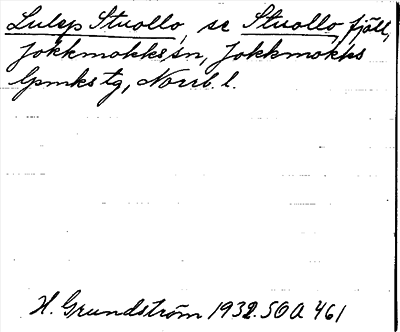 Lulep Stuollo, se Stuollo, fjäll,
Jokkmokks sn, Jokkmokks
lpmks tg, Norrb. l.
H. Grundström 1932. SOA 461